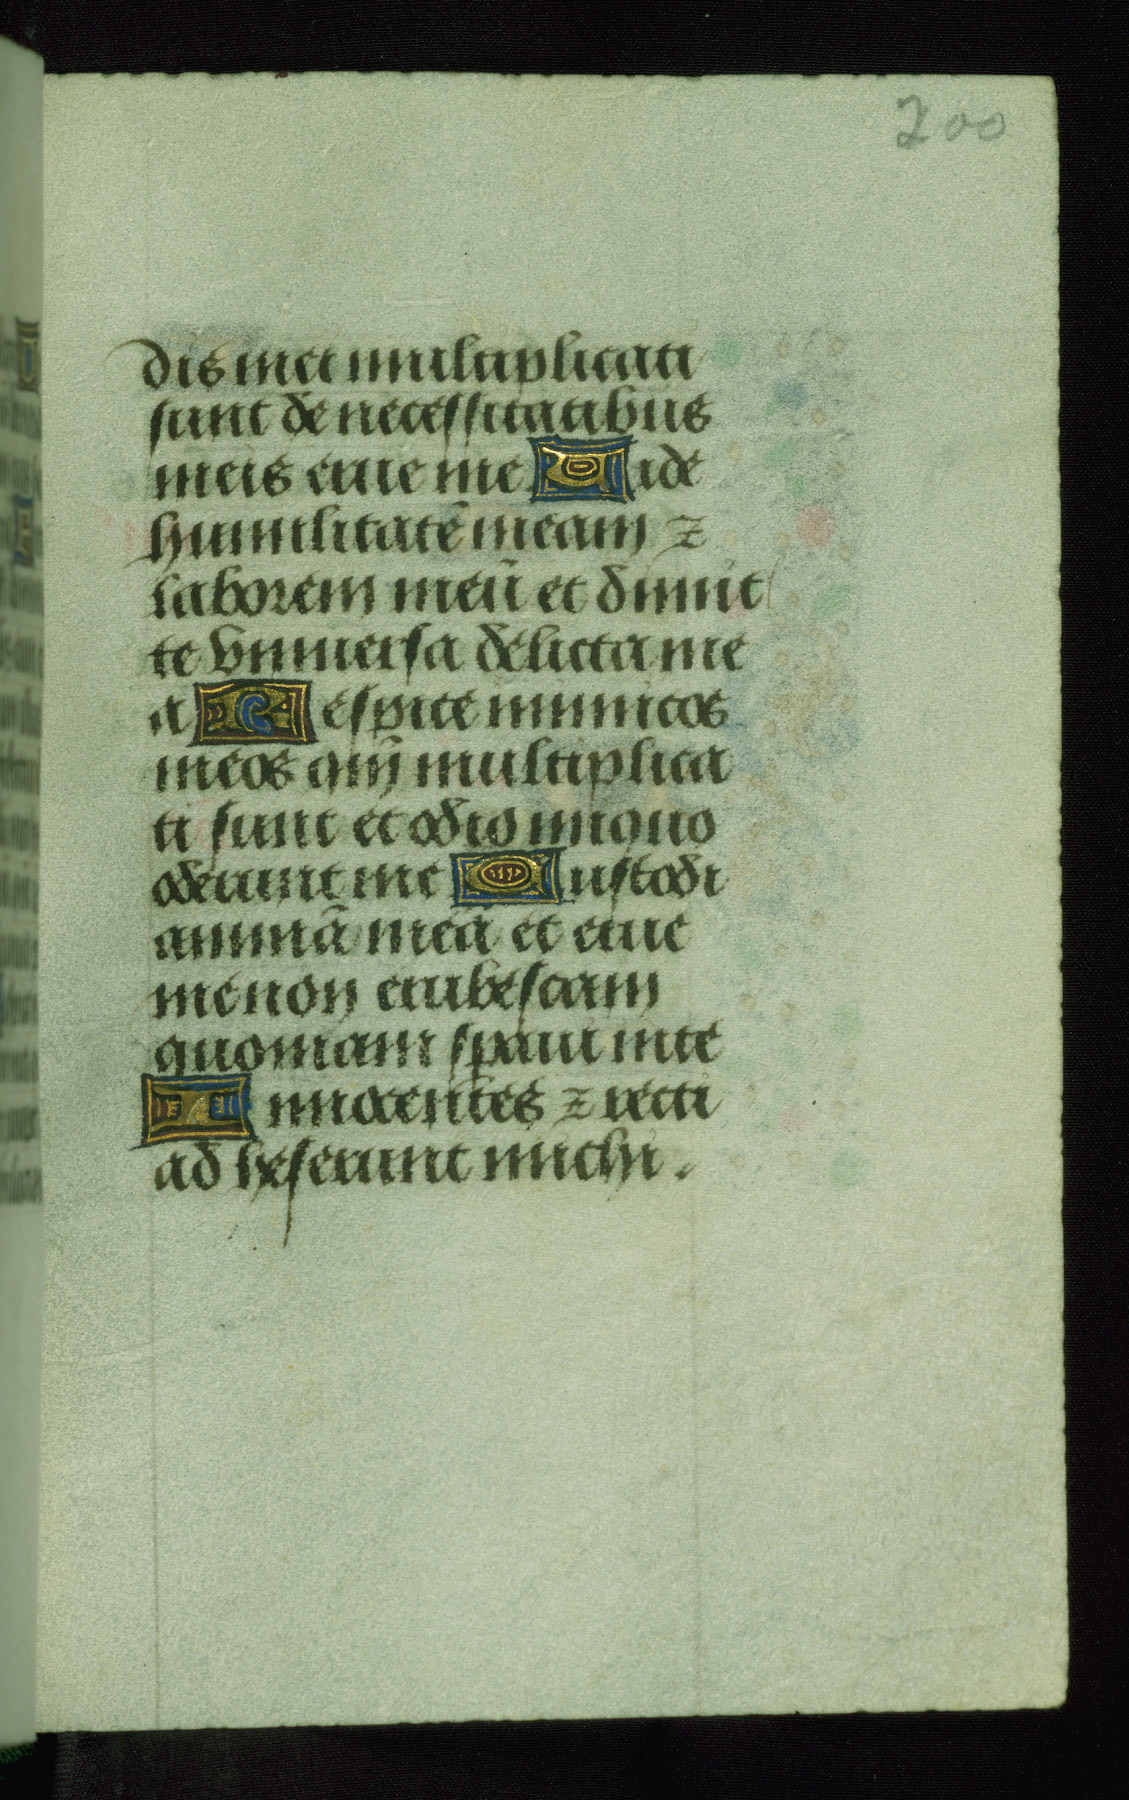 200
dis mei multiplicati
sunt de necessitatibus
meis erue me Vide
humilitatē meam ⁊
laborem meū et dimit
te vniuersa delicta me
a Respice inimicos
meos qm̄ multiplica
ti sunt et odio iniquo
oderunt me Custodi
animā meā et erue
me non erubescam
quoniam speraui in te
Innocentes ⁊ recti
ad heserunt michi.